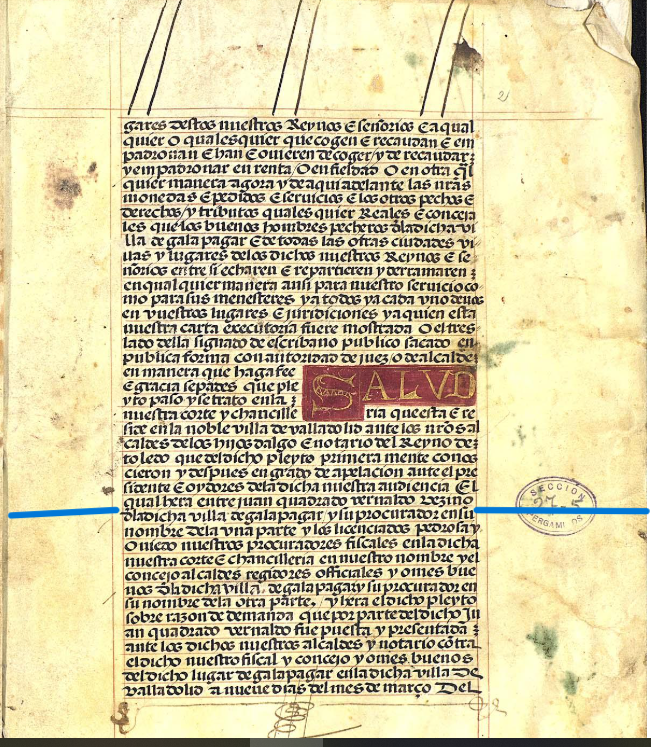 2
gares destos nuestros Reynos E señorios E a qual
quier O quales quier que cogen E recaudan E em
padronan E han E ouieren de coger / y de recaudar
y empadronar en renta / O en fieldad O en otra ql
quier manera agora y de aqui adelante las nras
monedas E pedidos E seruicios E los otros pechos E
derechos / y tributos quales quier Reales E conceja
les que los buenos hombres pecheros dla dicha vi
lla de galapagar E de todas las otras ciudades vi
llas y lugares de los dichos nuestros Reynos E se
ñorios entre si echaren E repartieren y derramaren
en qual quier manera ansi para nuestro seruicio co
mo para sus menesteres y a todos y a cada vno de uos
en vuestros lugares E juridiciones y a quien esta
nuestra carta executoria fuere mostrada O el tres
lado della signado de escribano publico sacado en
publica forma con autoridad de juez / o de alcalde
en manera que haga fee SALVD
E gracia sepades que ple
yto paso y se trato en la
nuestra corte y chancille ria que esta E re
side en la noble villa de valladolid ante los nros al
caldes de los hijos dalgo E notario del Reyno de
toledo que del dicho pleyto primera mente conos
cieron y despues en grado de apelacion ante el pre
sidente E oydores dela dicha nuestra audiencia El
qual hera entre juan quadrado vernaldo vezino
dla dicha villa de galapagar y su procurador en su
nombre dela vna parte y los licenciados pedrosa y
Ouiedo nuestros procuradores fiscales en la dicha
nuestra corte E chancilleria en nuestro nombre y el
concejo alcaldes regidores officiales y omes bue
nos dla dicha villa de galapagar y su procurador en
su nombre dela otra parte, y hera el dicho pleyto
sobre razon de demanda que por parte del dicho Ju
an quadrado vernaldo fue puesta y presentada
ante los dichos nuestros alcaldes y notario cótra
el dicho nuestro fiscal y concejo y omes buenos
del dicho lugar de galapagar en la dicha villa De
valladolid a nueue dias del mes de março Del
SECCION
27-5
PERGAMINOS